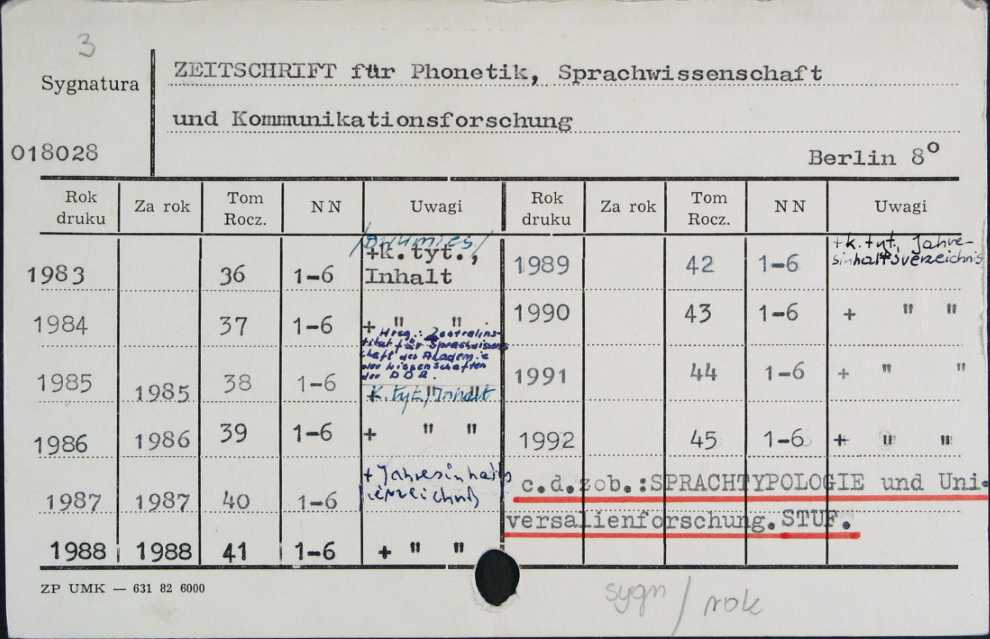 3
Sygnatura
ZEITSCHRIFT für Phonetik, Sprachwissenschaft
und Kommunikationsforschung
018028
Berlin 8º
Rok druku Za rok Tom Rocz. NN Uwagi Rok druku Za rok Tom Rocz. NN Uwagi
1983 36 1-6 +k.tyt., Inhalt
1984 37 1-6 + " "
Hrsg.: Zentralins-
titut für Sprachwissen
schaft der Akademie
der Wissenschaften
der DDR.
1985 1985 38 1-6 + " " k.tyt., Inhalt
1986 1986 39 1-6 + " "
1987 1987 40 1-6 + Jahresinhalts
verzeichnis
1988 1988 41 1-6 + " "
1989 42 1-6 +k.tyt., Jahre-
sinhaltsverzeichnis
1990 43 1-6 + " "
1991 44 1-6 + " "
1992 45 1-6 + " "
c.d.zob.:SPRACHTYPOLOGIE und Uni-
versalienforschung. STUF.
ZP UMK — 631 82 6000
sygn / rok